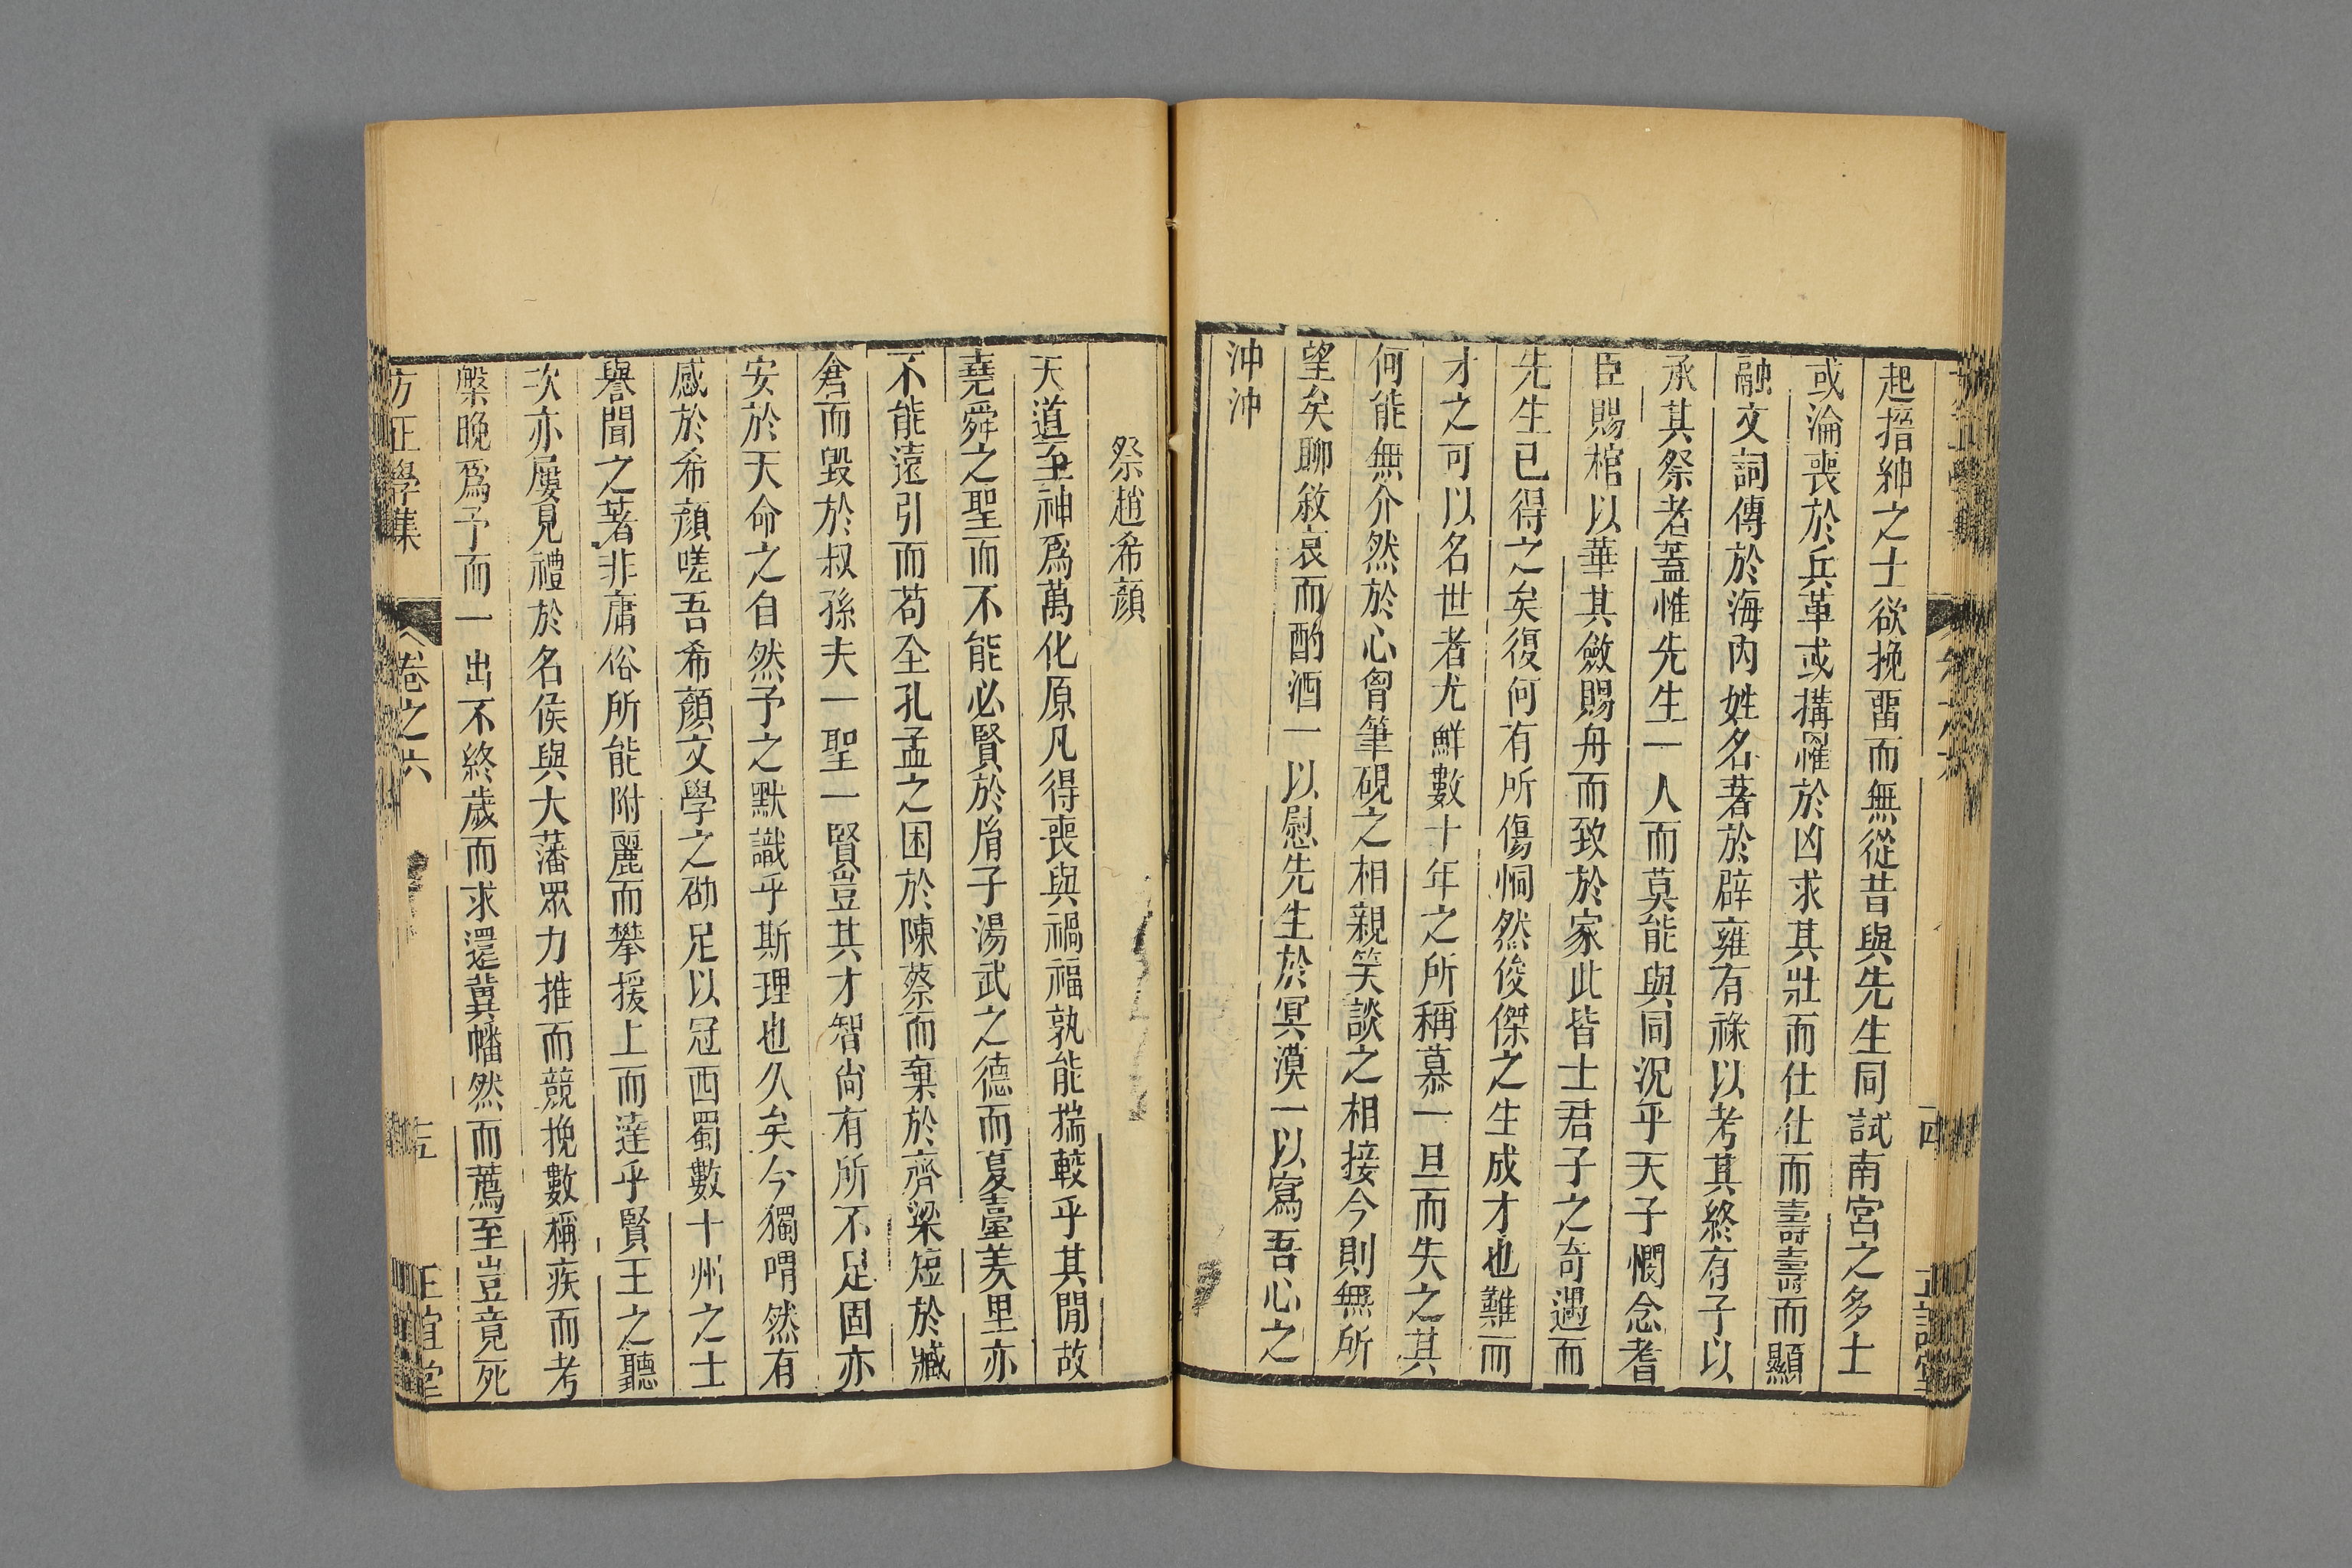 起搢紳之士欲挽畱而無從昔與先生同試南宮之多士
或淪喪於兵革或搆罹於凶求其壯而仕仕而壽壽而顯
融文詞傳於海內姓名著於辟雍有祿以考其終有子以
承其祭者蓋惟先生一人而莫能與同況乎天子憫念耆
臣賜棺以華其斂賜舟而致於家此皆士君子之奇遇而
先生已得之矣復何有所傷恫然俊傑之生成才也難而
才之可以名世者尤鮮數十年之所稱慕一旦而失之其
何能無介然於心曾筆硯之相親笑談之相接今則無所
望矣聊敘哀而酌酒一以慰先生於冥漠一以寫吾心之
沖沖
祭趙希顏
天道至神爲萬化原凡得喪與禍福孰能揣較乎其閒故
堯舜之聖而不能必賢於胤子湯武之德而夏臺羑里亦
不能遠引而苟全孔孟之困於陳蔡而棄於齊梁短於臧
倉而毀於叔孫夫一聖一賢豈其才智尙有所不足固亦
安於天命之自然予之默識乎斯理也久矣今獨喟然有
感於希顏嗟吾希顏文學之劭足以冠西蜀數十州之士
譽聞之著非庸俗所能附麗而攀援上而達乎賢王之聽
次亦屢見禮於名侯與大藩眾力推而競挽數稱疾而考
槃晚爲予而一出不終歲而求還冀幡然而薦至豈竟死
方正學集
卷之六
正誼堂